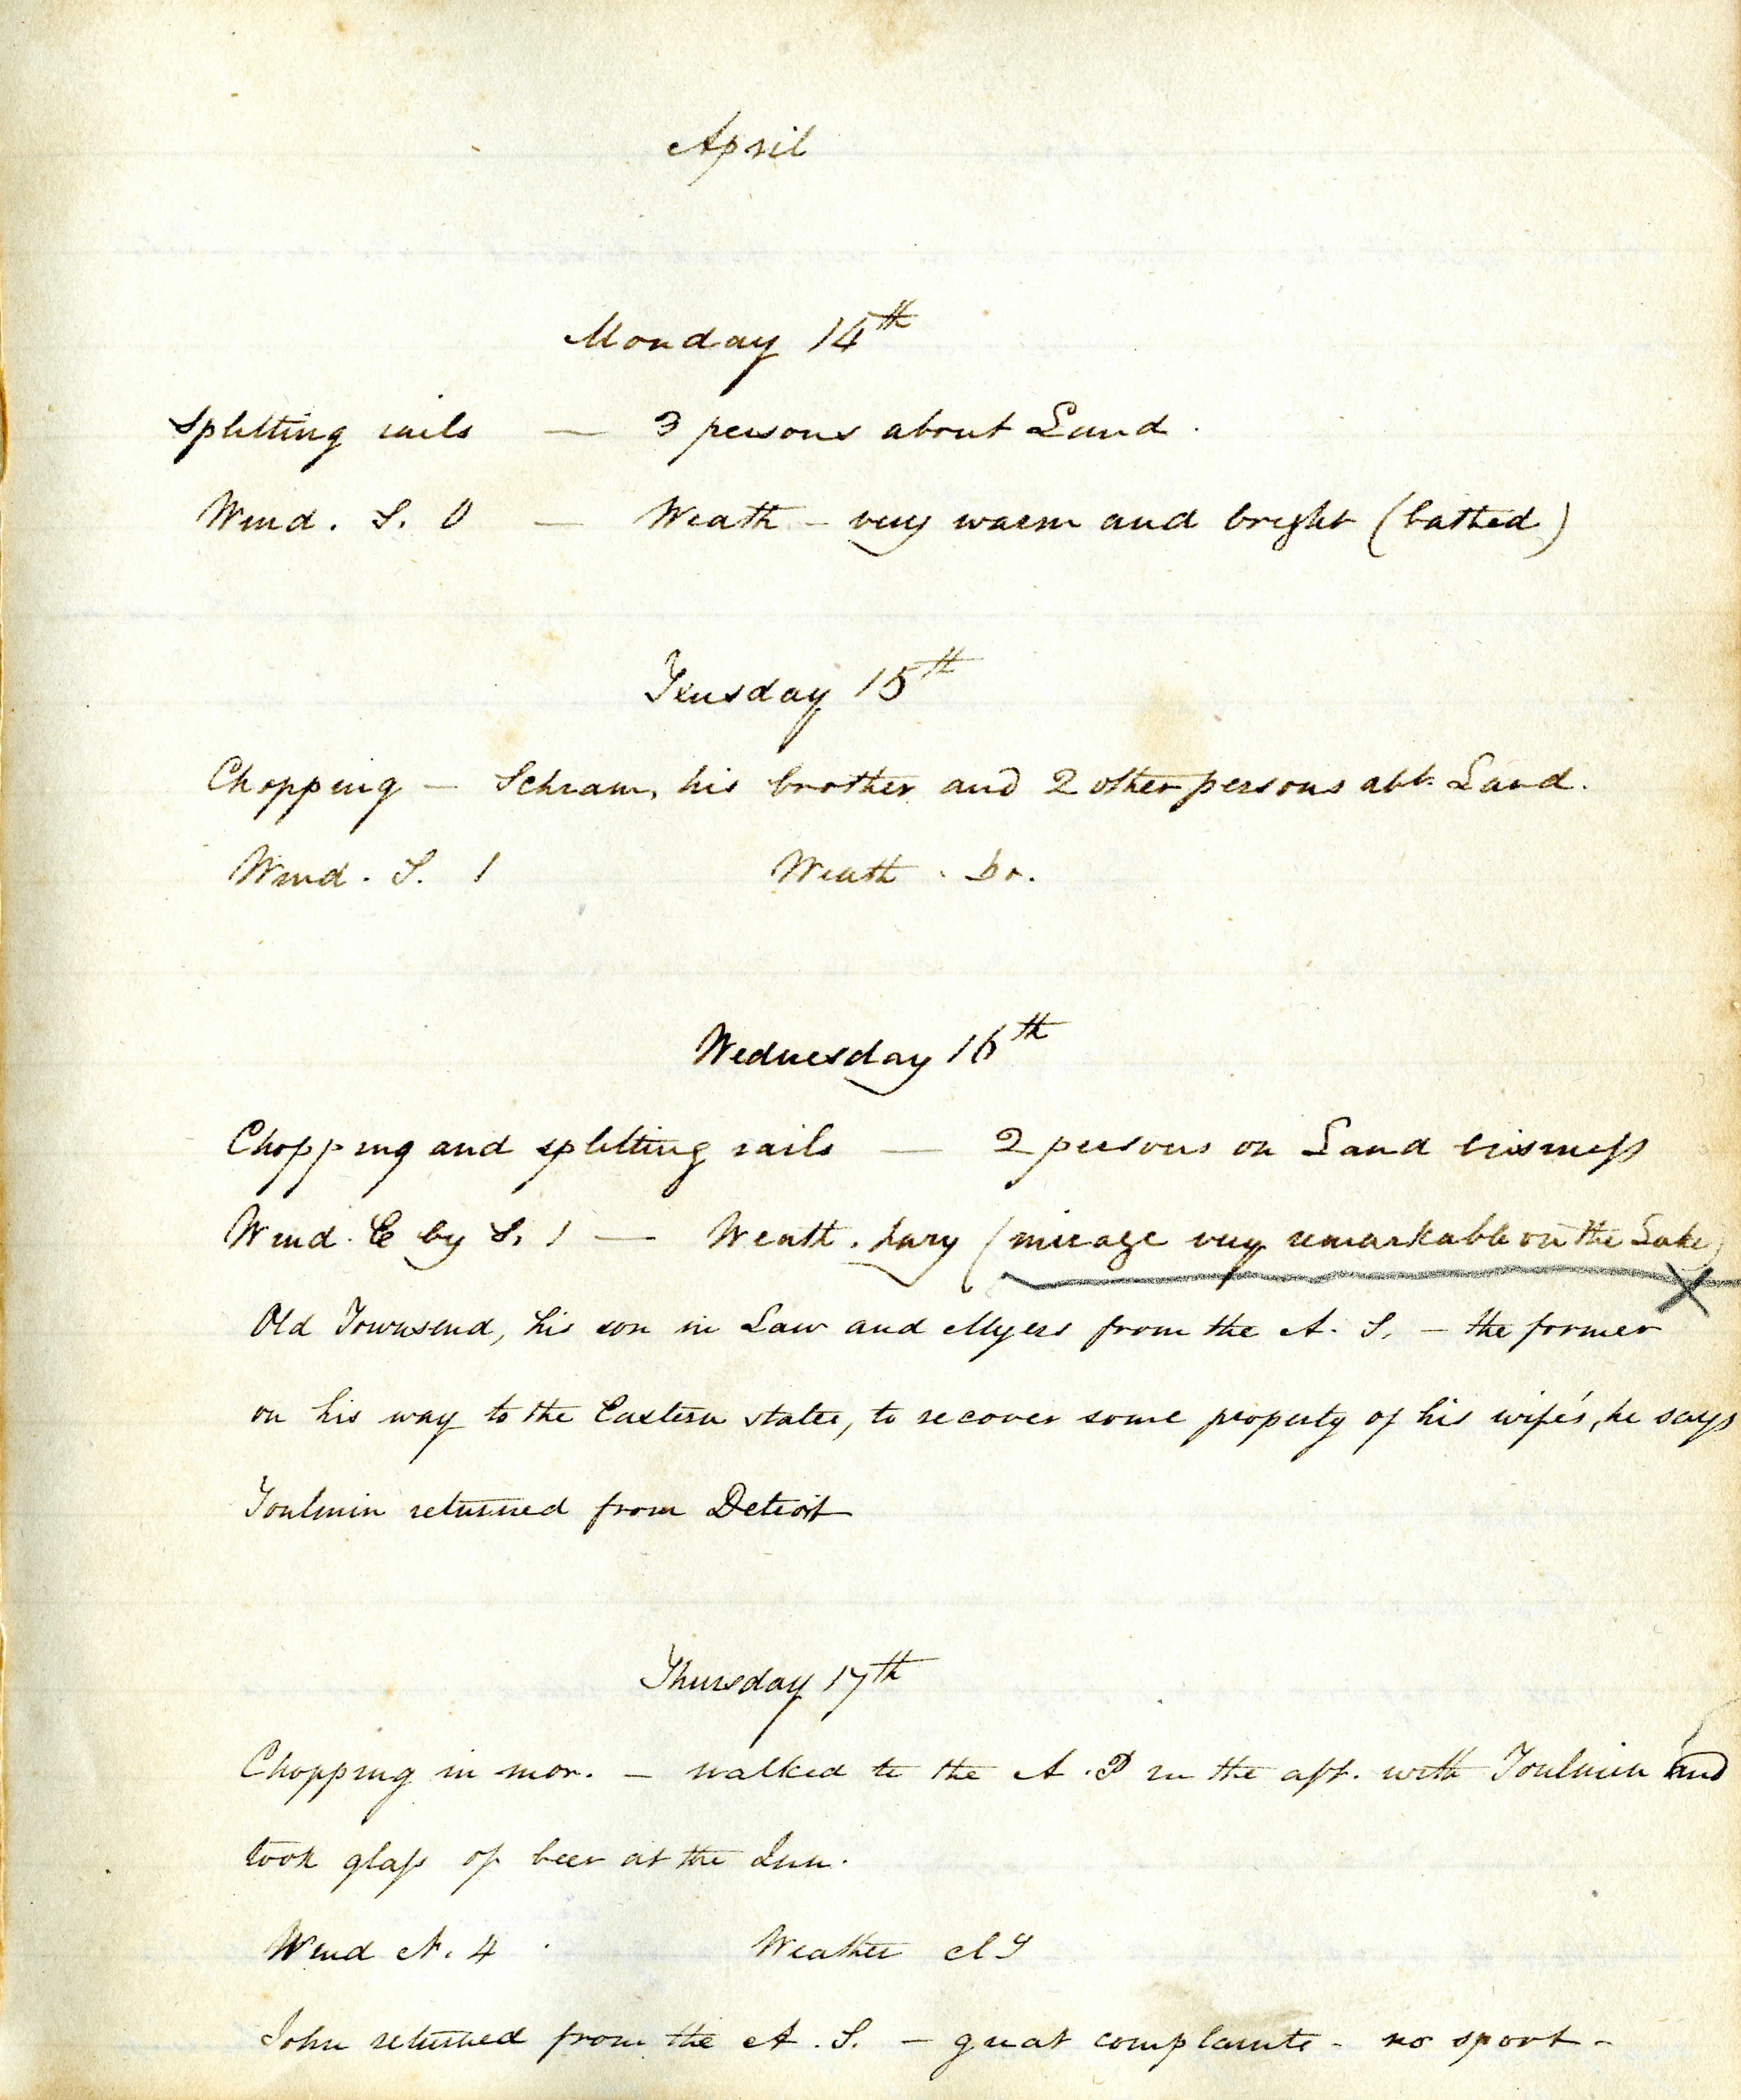 April
Monday 14th
Splitting rails — 3 persons about Land.
Wind. S. 0 — Weath - very warm and bright (bathed)
Teusday 15th
Chopping — Schram, his brother and 2 other persons abt. Land.
Wind. S. 1 Weath. Do.
Wednesday 16th
Chopping and splitting rails — 2 persons on Land business
Wind. E by S. 1 — Weath. hazy (mirage very remarkable on the Lake)
Old Townsend, his son in Law and Myers from the A. S. — the former
on his way to the Eastern states, to recover some property of his wife's, he says
Toulmin returned from Detroit
Thursday 17th
Chopping in mor. — walked to the A. P in the aft. with Toulmin and
took glass of beer at the Inn.
Wind N. 4. Weather
John returned from the A. S. — great complaints - no sport -